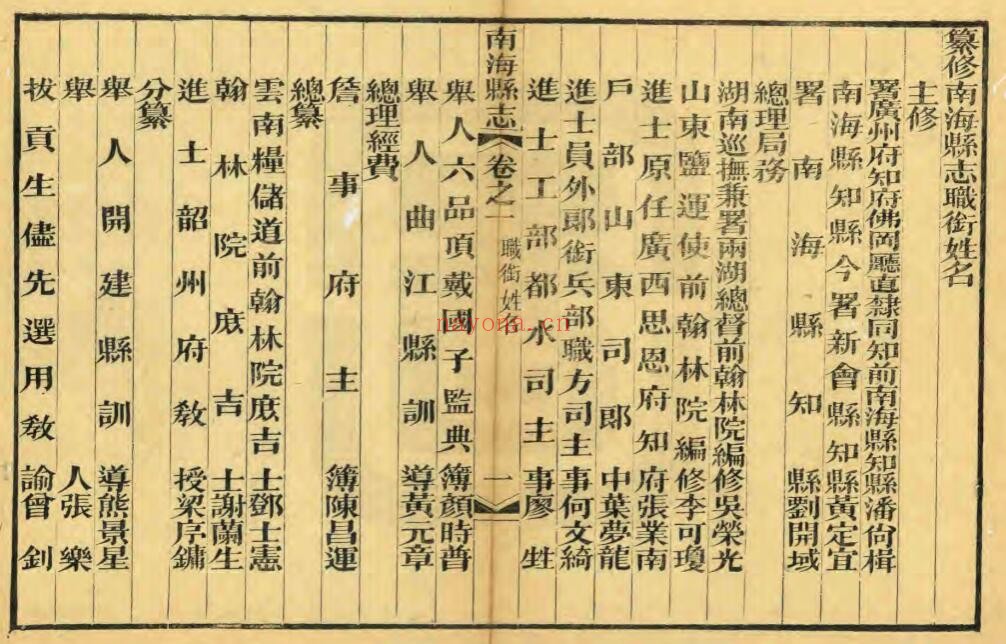 纂修南海縣志職銜姓名
主修
署廣州府知府佛岡廳直隸同知前南海縣知縣潘尙楫
南海縣知縣今署新會縣知縣黃定宜
署南海縣知縣劉開域
總理局務
湖南巡撫兼署兩湖總督前翰林院編修吳榮光
山東鹽運使前翰林院編修李可瓊
進士原任廣西思恩府知府張業南
戶部山東司郎中葉夢龍
進士員外郎銜兵部職方司主事何文綺
進士工部都水司主事廖甡
南海縣志 卷之一 職銜姓名 一
舉人六品頂戴國子監典簿顏時普
舉人曲江縣訓導黃元章
總理經費
詹事府主簿陳昌運
總纂
雲南糧儲道前翰林院庶吉士鄧士憲
翰林院庶吉士謝蘭生
進士韶州府敎授梁序鏞
分纂
舉人開建縣訓導熊景星
舉人張樂
拔貢生儘先選用敎諭曾釗
nayona.cn